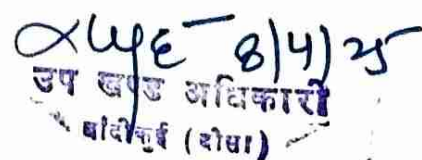 8/4/25
उप खण्ड अधिकारी
बांदीकुई (दौसा)